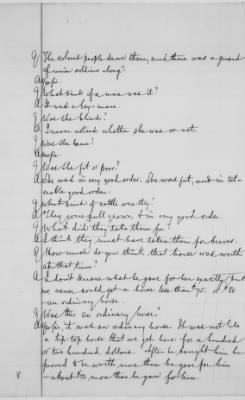 Q/ The colored people drove them, and there was a guard
of union soldiers along?
A/ Yes sir.
Q/ What kind of a mare was it?
A/ It was a bay mare.
Q/ Was she blind?
A/ I never asked whether she was or not.
Q/ Was she lame?
A/ No sir.
Q/ Was she fat or poor?
A/ She was in very good order. She was fat, and in tol-
erable good order.
Q/ What kind of cattle were they?
A/ They were full grown, & in very good order.
Q/ What did they take them for?
A/ I think they must have taken them for beeves.
Q/ How much do you think that horse was worth
at that time?
A/ I don't know what he gave for her exactly, but
we never could get a horse less than $75. or $80
— an ordinary horse.
Q/ Was this an ordinary horse?
A/ Yes sir, it was an ordinary horse. It was not like
a tip-top horse that we get here for a hundred
or two hundred dollars. After he bought him he
proved to be worth more than he gave for him
— about $10 more than he gave for him.
8